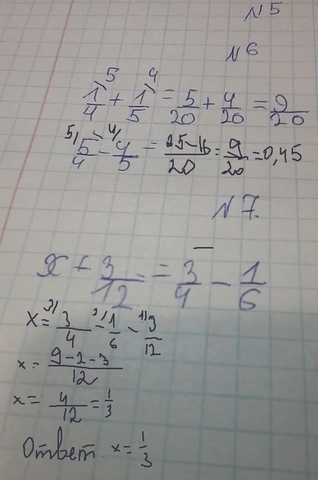 N5
N6
1/4 + 1/5 = 5/20 + 4/20 = 9/20
5/4 - 4/5 = 25-16/20 = 9/20 = 0,45
N7.
x + 3/12 = 3/4 - 1/6
x = 3/4 - 1/6 - 3/12
x = 9-2-3/12
x = 4/12 = 1/3
Ответ x = 1/3